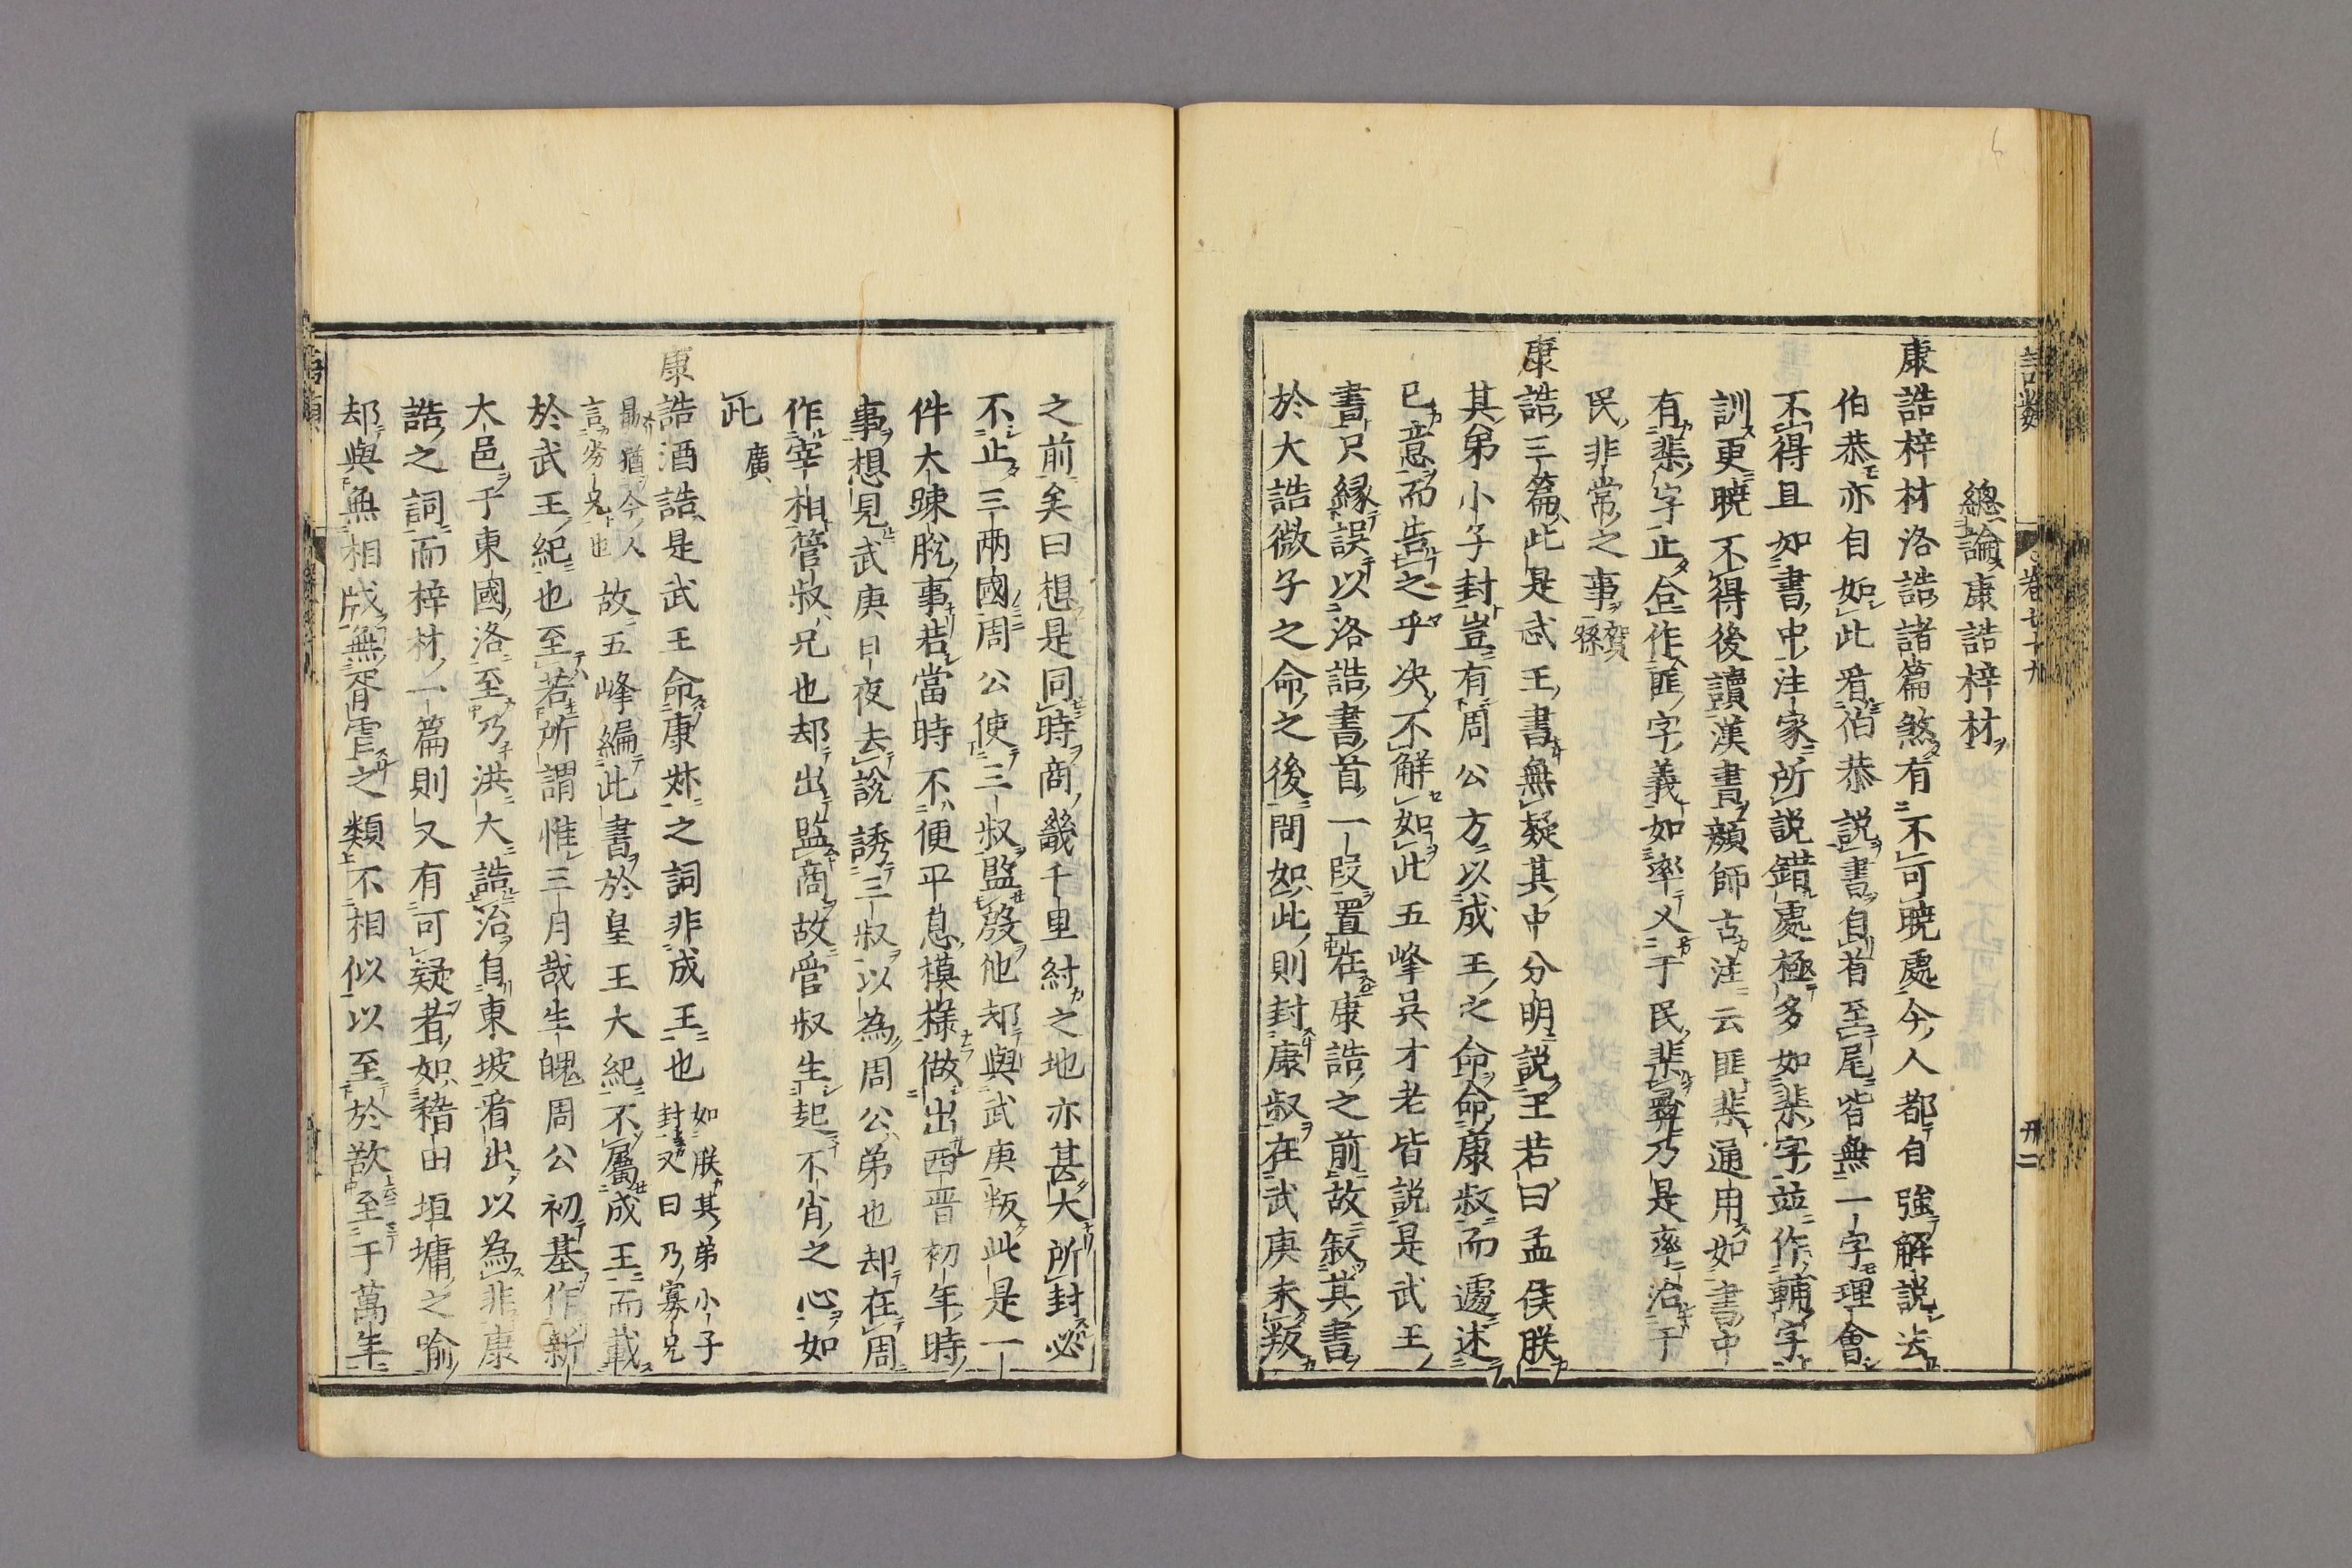 語類
卷七十九
卅二
總論康誥梓材
康誥梓材洛誥諸篇煞有不可曉處今人都自強解説去
伯恭亦自如此看伯恭説書自首至尾皆無一字理會
不得且如書中注家所説錯處極多如棐字並作輔字
訓更曉不得後讀漢書顔師古注云匪棐通用如書中
有棐字止合作匪字義如率乂于民棐彝乃是率治于
民非常之事賀孫
康誥三篇此是武王書無疑其中分明説王若曰孟侯朕
其弟小子封豈有周公方以成王之命命康叔而遽述
已意而告之乎决不解如此五峰吳才老皆説是武王
書只縁誤以洛誥書首一段置在康誥之前故叙其書
於大誥微子之命之後問如此則封康叔在武庚未叛
之前矣曰想是同時商畿千里紂之地亦甚大所封必
不止三兩國周公使三叔監殷他却與武庚叛此是一
件大踈脫事若當時不便平息模様做出西晋初年時
事想見武庚日夜去說誘三叔以為周公弟也却在周
作宰相管叔兄也却出監商故管叔生起不肖之心如
此廣
康誥酒誥是武王命康叔之詞非成王也如朕其弟小子
封又曰乃寡兄
勗猶今人
言劣兄也故五峰編此書於皇王大紀不屬成王而載
於武王紀也至若所謂惟三月哉生魄周公初基作新
大邑于東國洛至乃洪大誥治自東坡看出以為非康
誥之詞而梓材一篇則又有可疑者如稽田垣墉之喻
却與無相戕無胥虐之類不相似以至於欲至于萬年